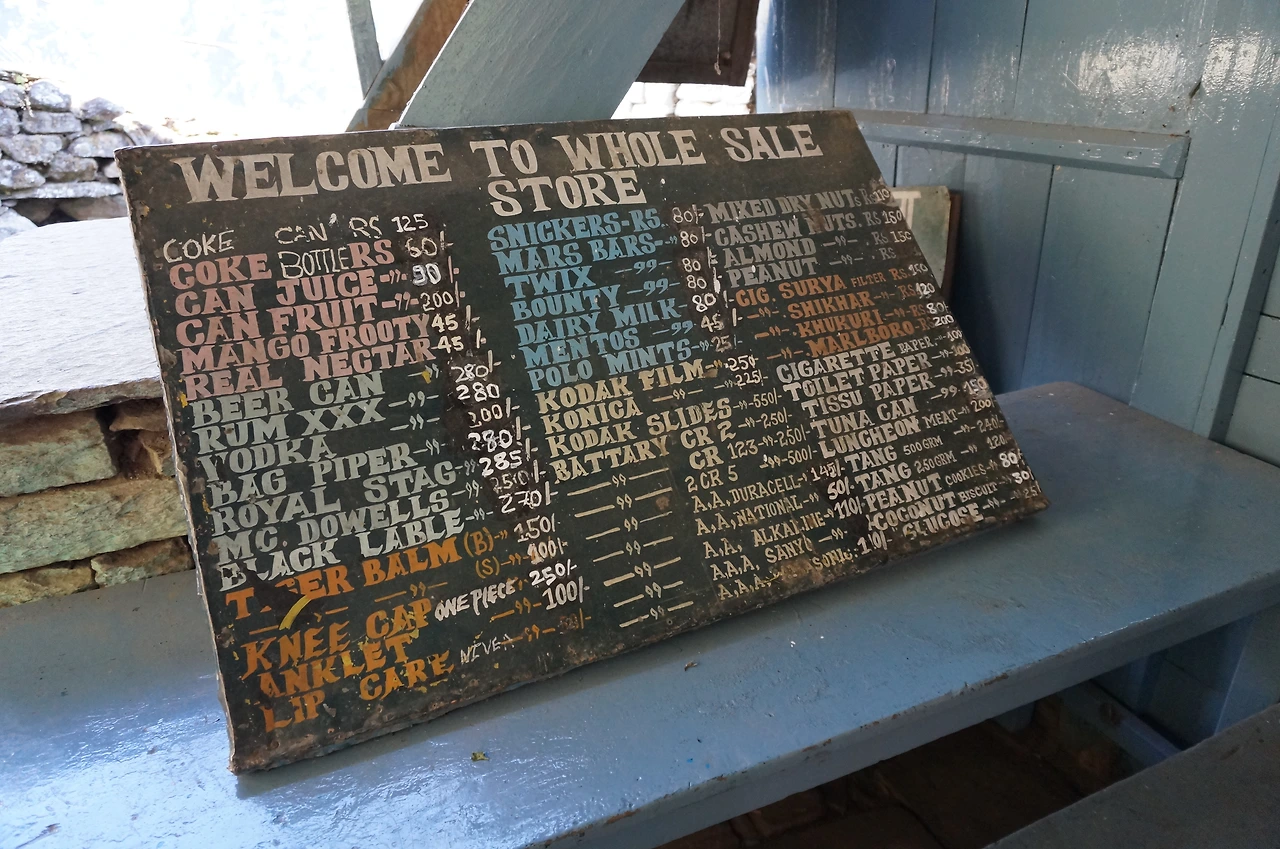 WELCOME TO WHOLE SALE
STORE
COKE CAN RS 125
COKE BOTTLE RS 60/-
CAN JUICE -"- 90/-
CAN FRUIT -"- 200/-
MANGO FROOTY 45/-
REAL NECTAR -"- 45/-
BEER CAN 280/-
RUM XXX -"- 280
VODKA -"-
BAG PIPER -"- 280/-
ROYAL STAG -"- 285/-
MC. DOWELLS -"-
BLACK LABLE -"- 270/-
BALM (B) -"- 150/-
-"- (S) -"-
KNEE CAP ONE PIECE 250/-
ANKLET -"- 100/-
LIP CARE NIVEA -"-
SNICKERS-RS. 80/-
MARS BARS -"- 80/-
TWIX -"- 80
BOUNTY -"- 80/-
DAIRY MILK -"- 80/-
MENTOS -"- 45/-
POLO MINTS -"- 25/-
KODAK FILM -"-
KONICA -"- 225/-
KODAK SLIDES -550/-
BATTARY CR 2 -250/-
-"- CR 123 -250/-
-"- 2 CR 5 -"- 500/-
-"- A,A, DURACELL- 145/-
-"- A,A, NATIONAL-" 50/-
-"- A,A, ALKALINE-" 110/-
-"- A,A,A, SANYO
-"- A,A,A, 110/-
MIXED DRY NUTS
CASHEW NUTS. RS 150
ALMOND -"- RS 150
PEANUT -"- RS
CIG. SURYA FILTER RS.
-"- SHIKHAR -"- RS
-"- KHUKURI -"- RS 80/-
-"- MARLBORO -"- RS 200
CIGARETTE PAPER
TOILET PAPER -"-
TISSU PAPER -"- 35
TUNA CAN -"- 150
LUNCHEON MEAT -"- 200
TANG 500GRM -"- 240/-
TANG 250GRM -"- 120
PEANUT COOKIES -"- 80/-
COCONUT BISCUIT -"- 30/-
GLUCOSE -"- 25/-